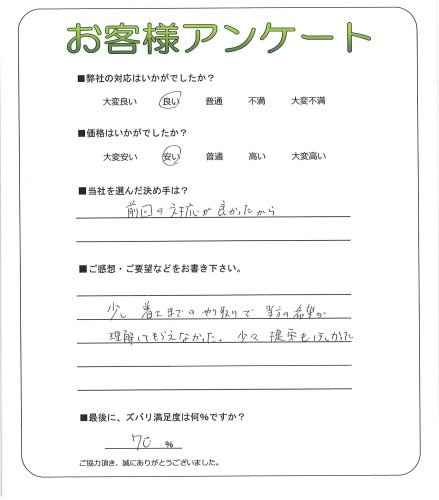 お客様アンケート
■弊社の対応はいかがでしたか？
大変良い 良い 普通 不満 大変不満
■価格はいかがでしたか？
大変安い 安い 普通 高い 大変高い
■当社を選んだ決め手は？
前回の対応が良かったから
■ご感想・ご要望などをお書き下さい。
少し 着工までのやり取りで 当方の希望が
理解してもらえなかった。少々 提案もほしかった
■最後に、ズバリ満足度は何%ですか？
70 %
ご協力頂き、誠にありがとうございました。